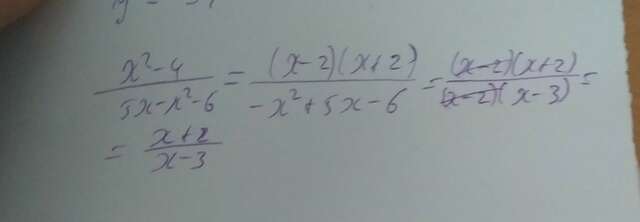 (x²-4)/(5x-x²-6) = ((x-2)(x+2))/(-x²+5x-6) = ((x-2)(x+2))/((x-2)(x-3)) =
= (x+2)/(x-3)